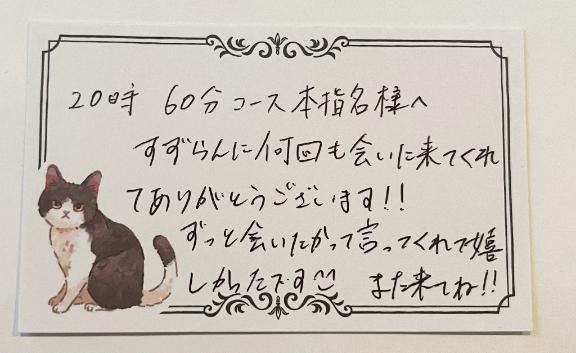 20時 60分コース本指名様へ
すずらんに何回も会いに来てくれ
てありがとうございます!!
ずっと会いたかって言ってくれて嬉
しかったです また来てね!!